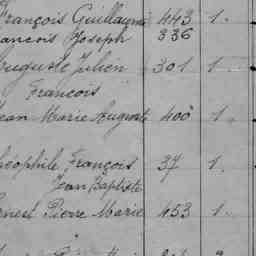 François Guillaume 443 1.
François Joseph 336
Auguste Julien 301 1
François
Jean Marie Auguste 400 1.
Théophile François 37 1.
Jean Baptiste
Ernest Pierre Marie 453 1.